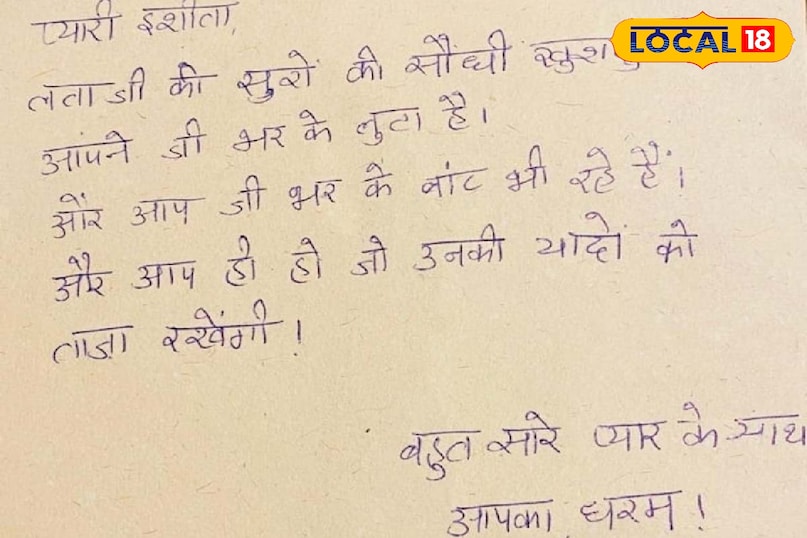 प्यारी इशीता,
LOCAL 18
लताजी की सुरों की सौंधी
आपने जी भर के लुटा है।
और आप जी भर के बांट भी रहे हैं।
और आप ही हो जो उनकी यादों को
ताज़ा रखेंगी!
बहुत सारे प्यार के साथ
आपका धरम!